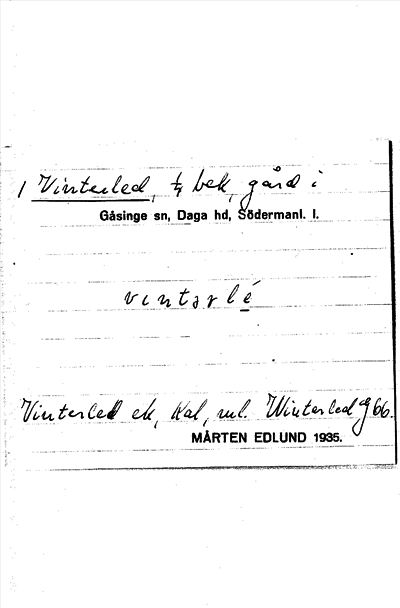 1 Vinterled, ¼ bek, gård i
Gåsinge sn, Daga hd, Södermanl. l.
vıntərlé
Vinterled ek, Kal, ml. Winterled 66.
MÅRTEN EDLUND 1935.